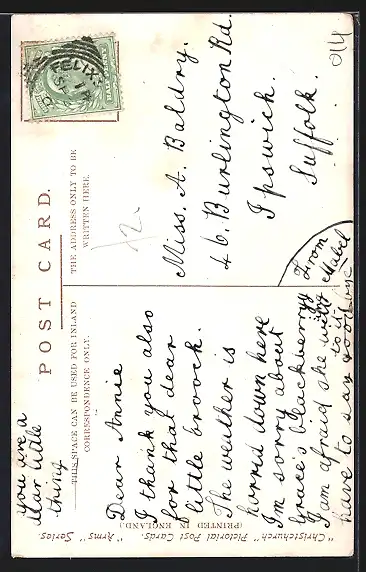 POST CARD.
THIS SPACE CAN BE USED FOR INLAND
CORRESPONDENCE ONLY.
THE ADDRESS ONLY TO BE
WRITTEN HERE.
FELIXS
Miss. A. Baldry.
46. Burlington Rd.
Ipswich.
Suffolk.
From
Mabel
you are a
dear little
thing
Dear Annie
I thank you also
for that dear
little broock.
The weather is
horrid down here
I'm sorry about
Grace's blackberry
I am afraid she will
have to say good-bye
to it
(PRINTED IN ENGLAND.)
"Christchurch" Pictorial Post Cards. "Arms" Series.